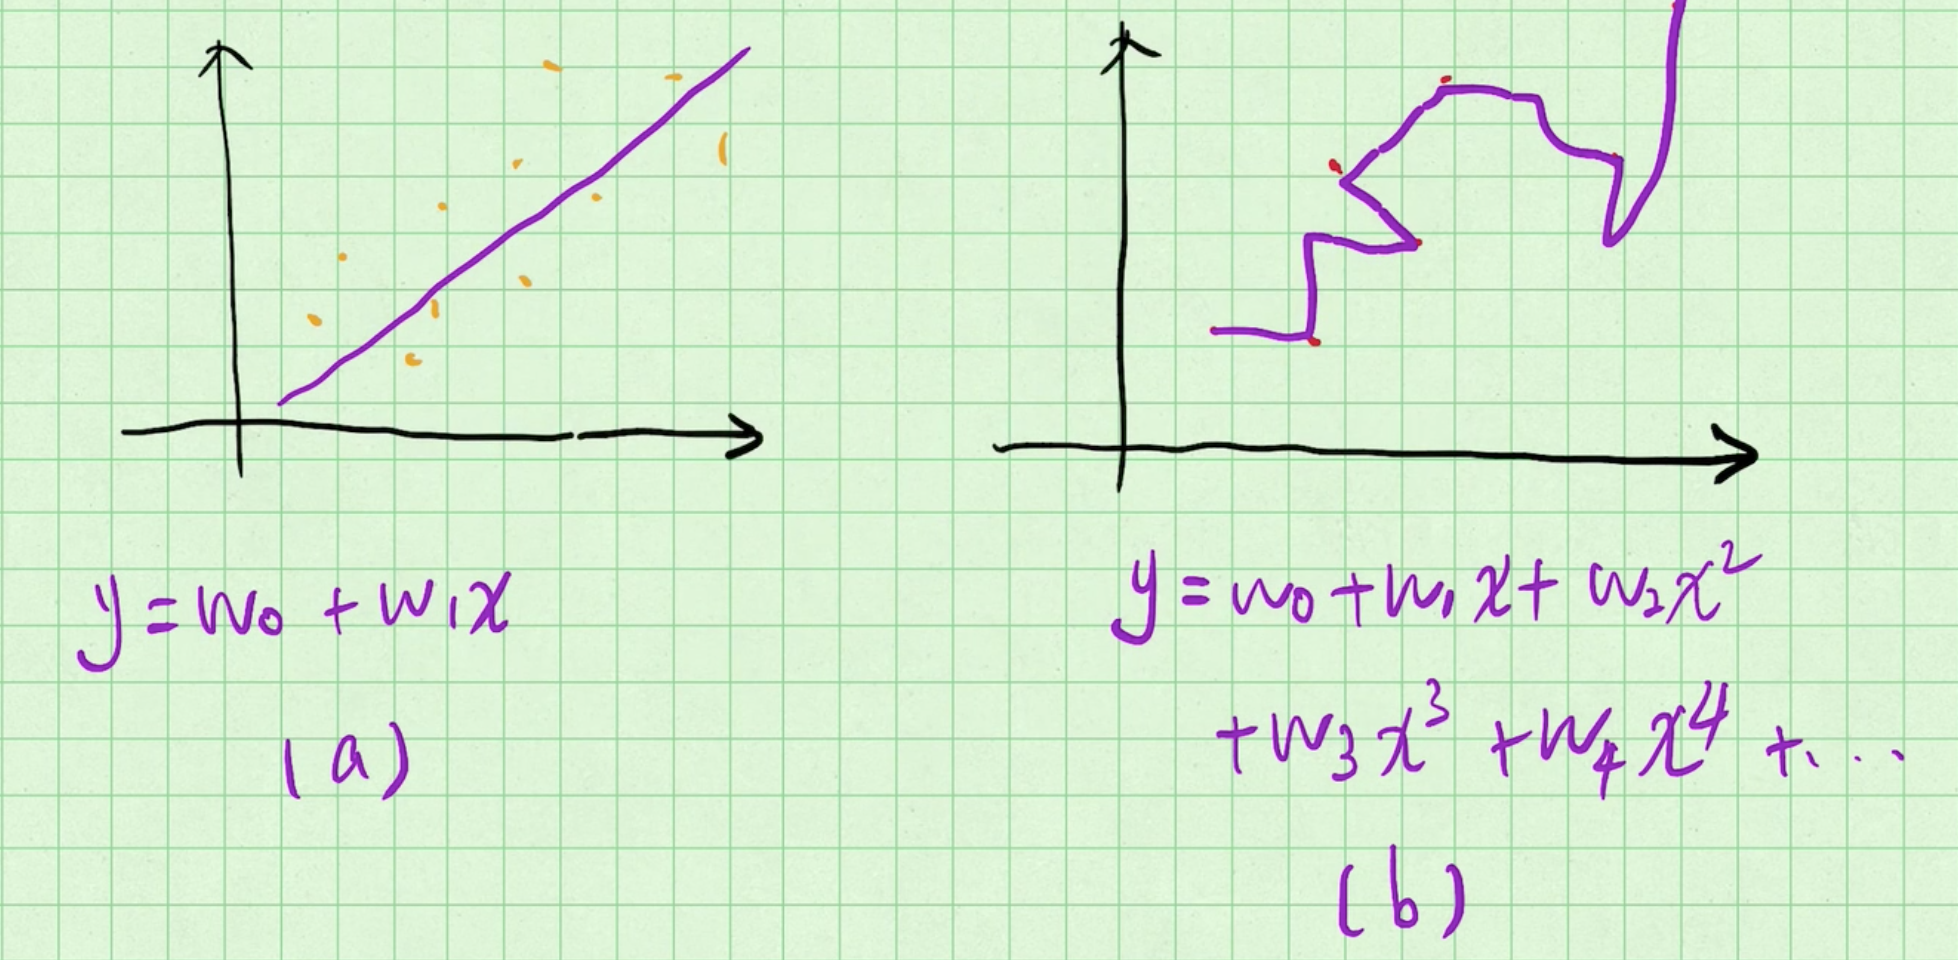 y = w₀ + w₁x
(a)
y = w₀ + w₁x + w₂x²
+ w₃x³ + w₄x⁴ + ...
(b)